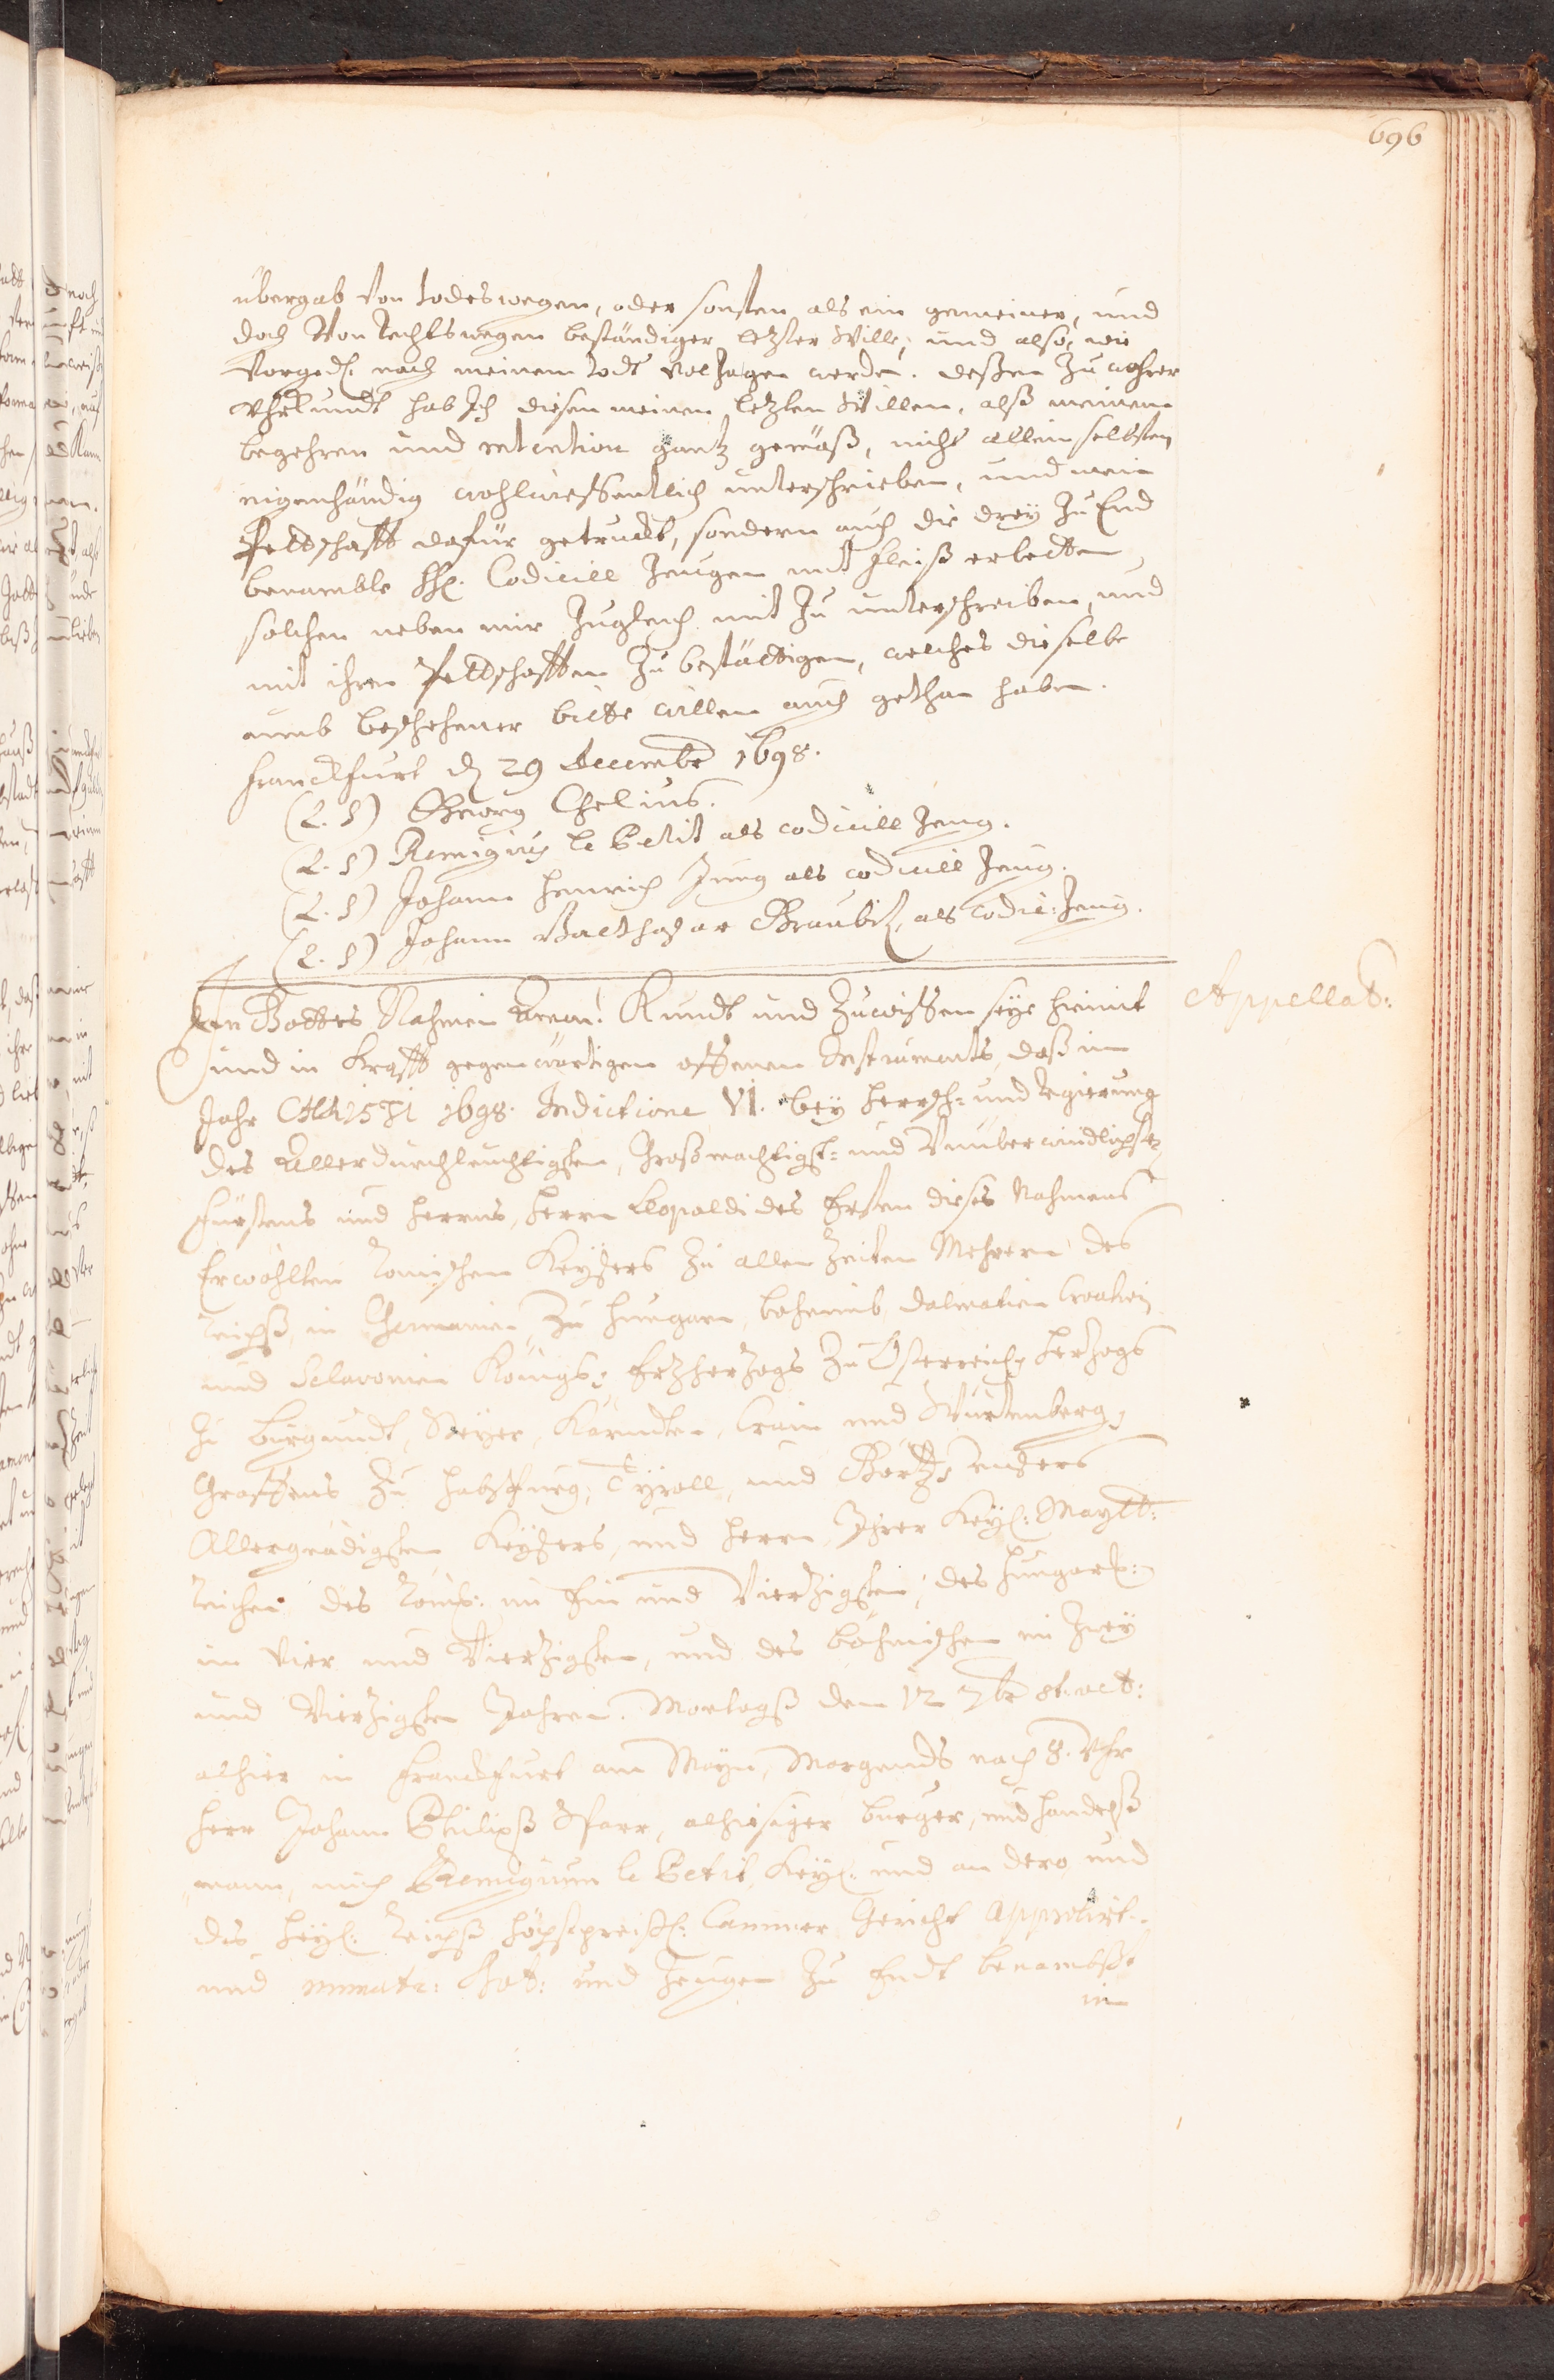 696
übergab von todeswegen, oder sonsten als ein gemeiner, und
doch von rechtswegen beständiger letzter Will, und also, wie
vorged. nach meinem todt volzogen werden. deßen zu wahrer
Uhrkundt hab Ich diesen meinen letzten Willen, alß meinem
begehren und intention gantz gemäß, nicht allein selbsten
eigenhändig wohlwißentlich unterschrieben, und mein
Pettschafft dafür getruckt, sondern auch die drey zu End
benambte HH. Codicill Zeugen mit fleiß erbetten,
solchen neben mir zugleich mit zu unterschreiben, und
mit ihren Pettschafften zu bestättigen, welches dieselbe
umb beschehener bitte willen auch gethan haben.
Franckfurt d. 29 Decembr 1698.
(L. S) Georg Chelius.
(L. S) Remigius le Petit als codicill Zeug.
(L. S) Johann Henrich Jung als codicill Zeug.
(L. S) Johann Balthasar Graubitz, als codic: Zeug.
Appellat:
In Gottes Nahmen Amen! Kundt und Zuwißen seye hiemit
und in Krafft gegenwärtigen offenen Instruments, daß im
Jahr CHRISTI 1698. Indictione VI. bey Herrsch= und Regierung
des Allerdurchleuchtigsten, Großmächtigst= und Unüberwindlichsten
Fürstens und Herrns, Herrn Leopoldi des Ersten dieses Nahmens
Erwöhlten Römischen Keysers zu allen Zeiten Mehrern des
Reichß, in Germanien, zu Hungarn, böheimb, Dalmatien Croatien
und Sclavonien Königs, Ertzhertzogs zu Österreich, Hertzogs
zu Burgundt, Steyer, Kärndten, Crain und Würtenberg,
Graffens zu Habspurg, Tyroll, und Görtz, unsers
Allergnädigsten Keysers, und Herrn, Ihrer Keyß: Maytt:
Reichen des Römis: im Ein und Viertzigsten, des Hungaris:
im Vier und Viertzigsten, und des böhmischen im Zwey
und Viertzigsten Jahren. Montagß den 12 7br st. vet:
alhier in Franckfurt am Mayn, Morgends nach 8. Uhr
Herr Johann Philipß, alhiesiger burger, und handelß
mann, mich Remigium le Petit, Keyß: und an dero und
des Heyl: Reichß höchstpreißl: Cammer Gericht Approbirt=
und immatr: Not: und Zeugen zu Endt benambßt
in